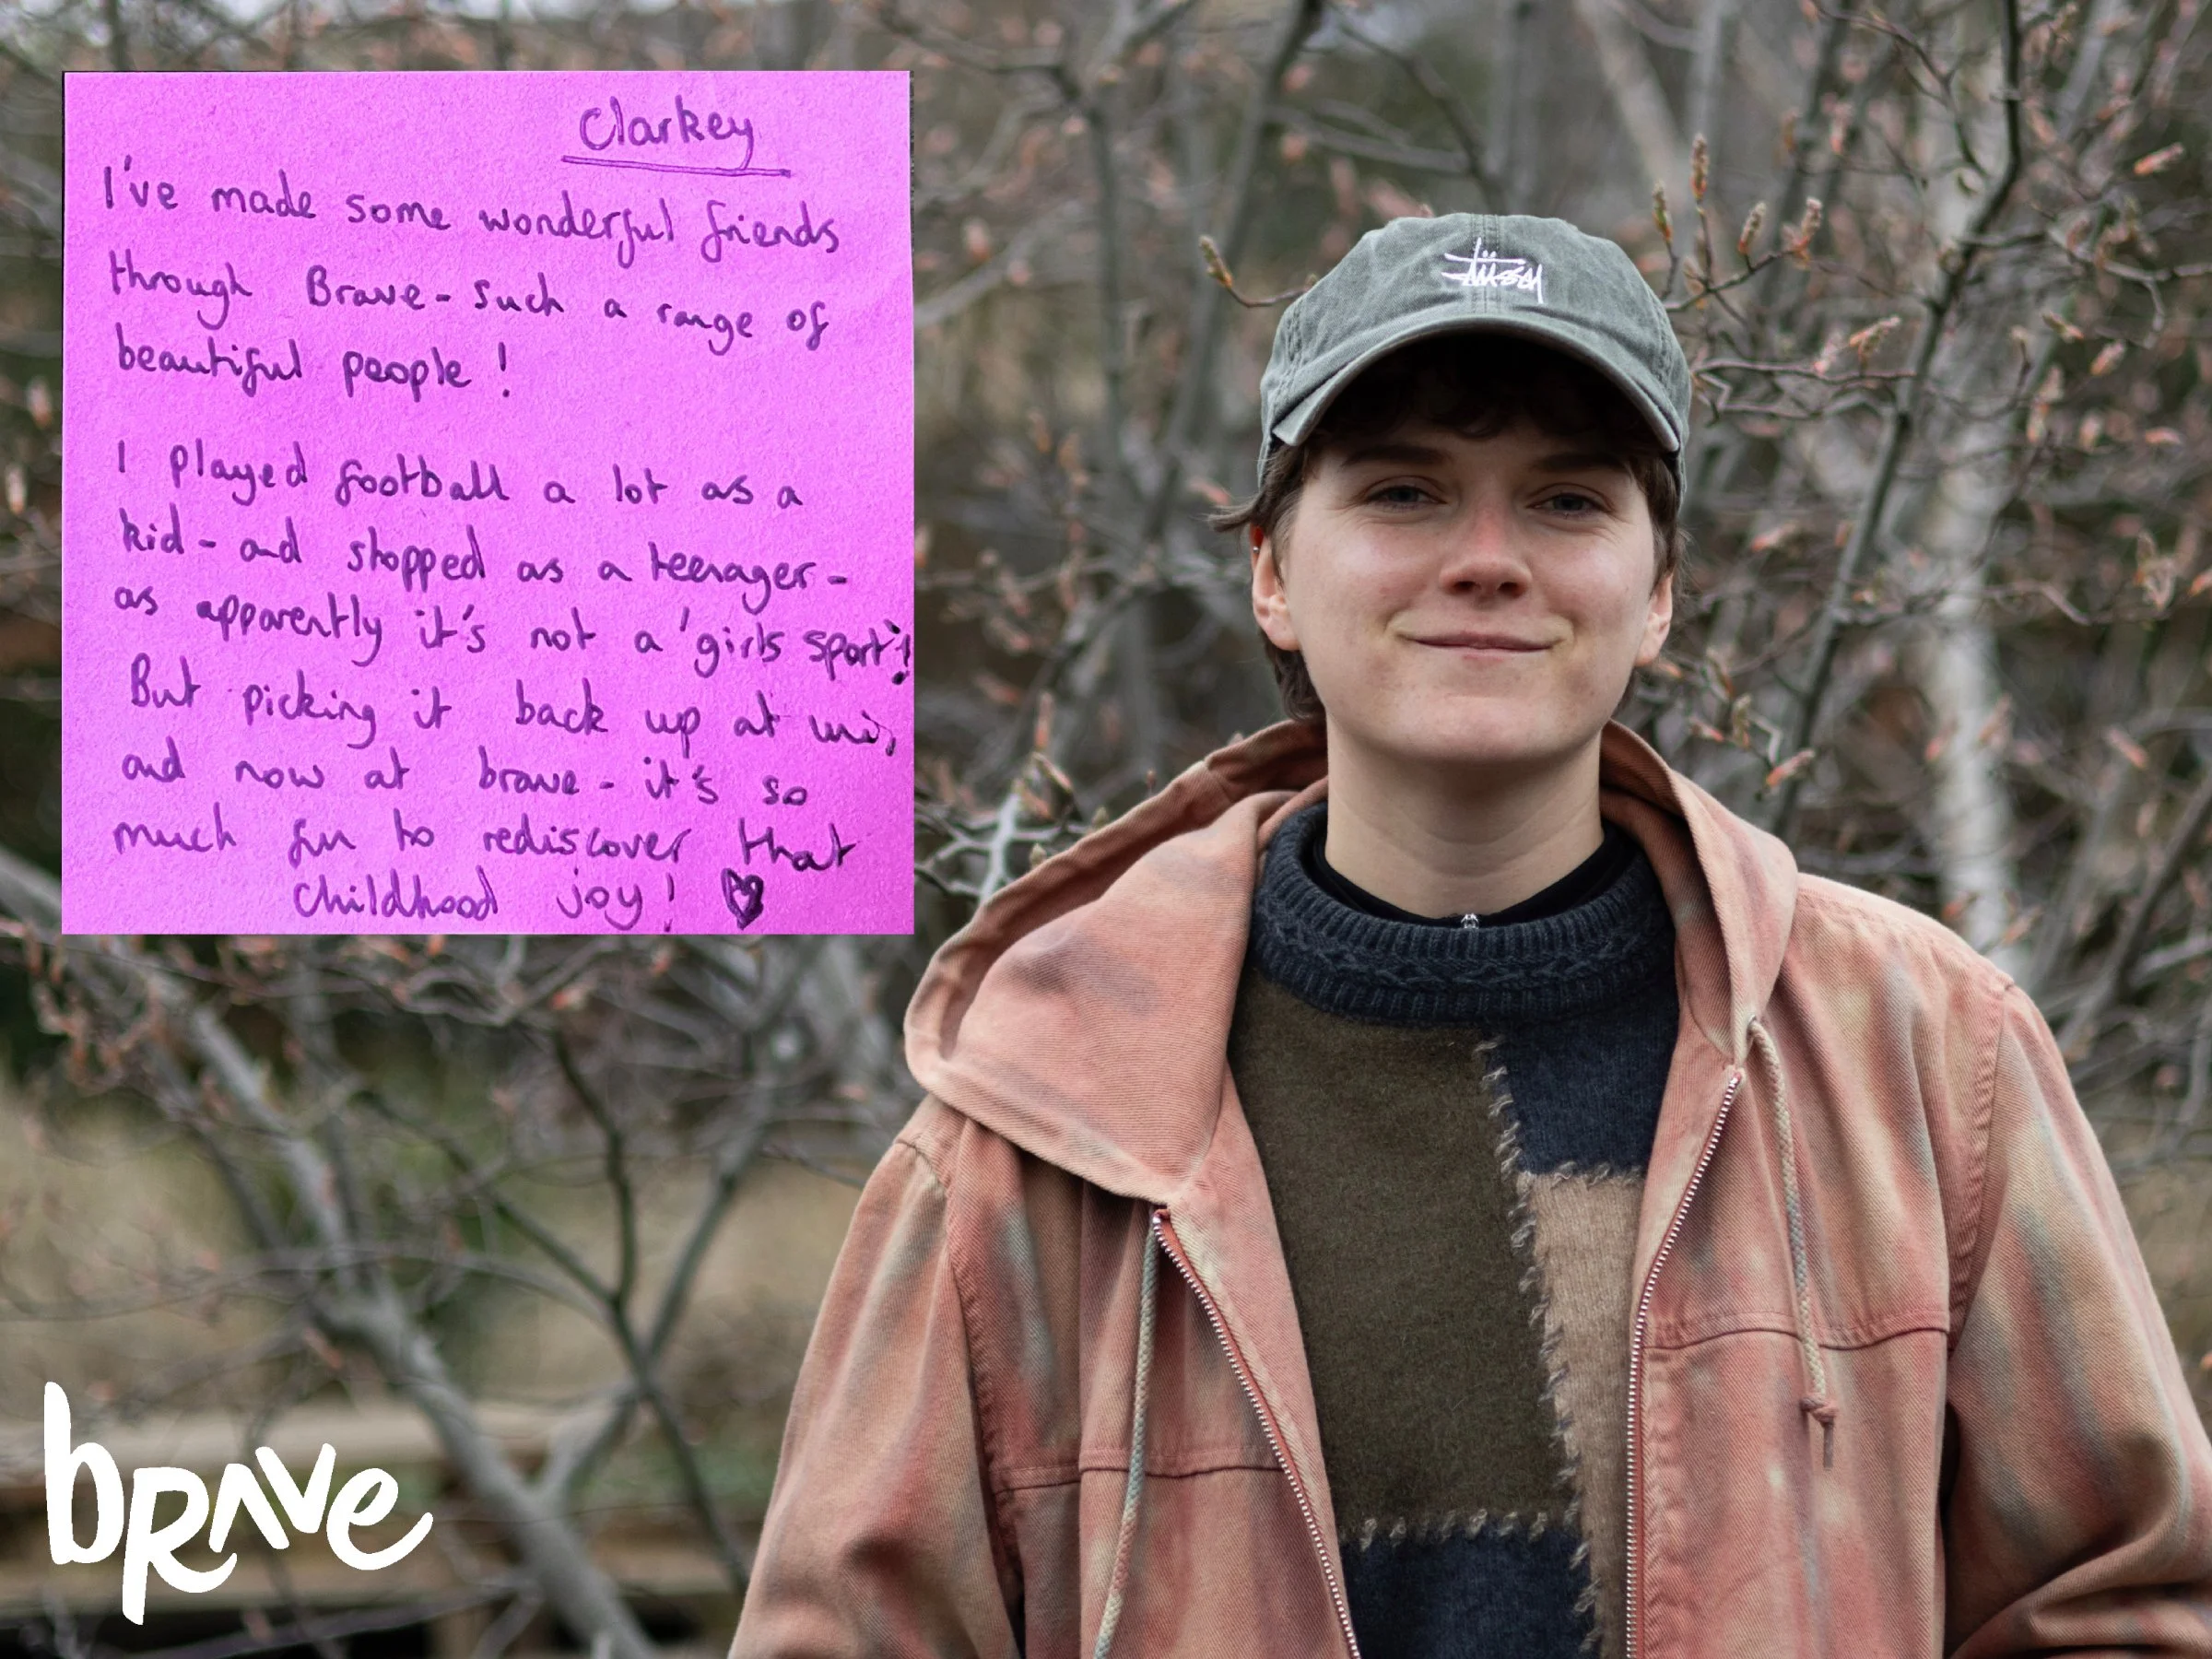 Clarkey
I've made some wonderful friends
through Brave - such a range of
beautiful people!
I played football a lot as a
kid - and stopped as a teenager -
as apparently it's not a 'girls sport'!
But picking it back up at uni,
and now at brave - it's so
much fun to rediscover that
childhood joy!
Stüssy
brave